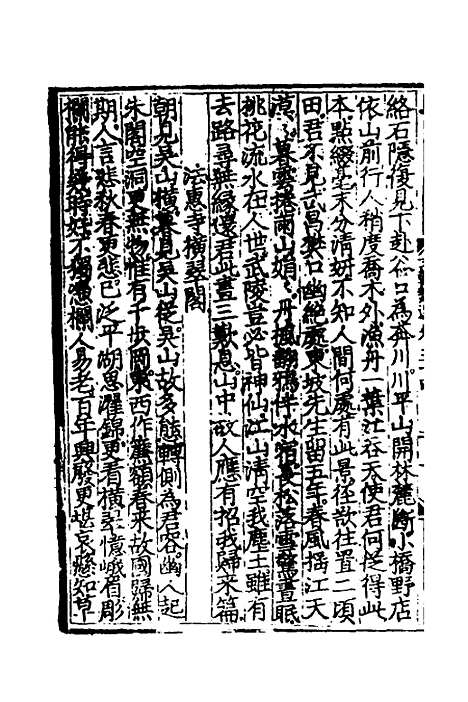 絡石隱復見下赴谷口為奔川川平山開林麓斷小橋野店
依山前行人稍度喬木外漁舟一葉江吞天使君何從得此
本點綴毫末分清妍不知人間何處有此景徑欲往置二頃
田君不見武昌樊口幽絕處東坡先生留五年春風搖江天
漠漠暮雲捲雨山娟娟丹楓翻鴉伴水宿長松落雪驚晝眠
桃花流水在人世武陵豈必皆神仙江山清空我塵土雖有
去路尋無緣還君此畫三歎息山中故人應有招我歸來篇
法惠寺橫翠閣
朝見吳山橫暮見吳山從吳山故多態轉側為君容幽人起
朱閣空洞更無物惟有千步岡東西作簾額春來故國歸無
期人言悲秋春更悲已泛平湖思濯錦更看橫翠憶峨眉彫
欄能得幾時好不獨憑欄人易老百年興廢更堪哀懸知草